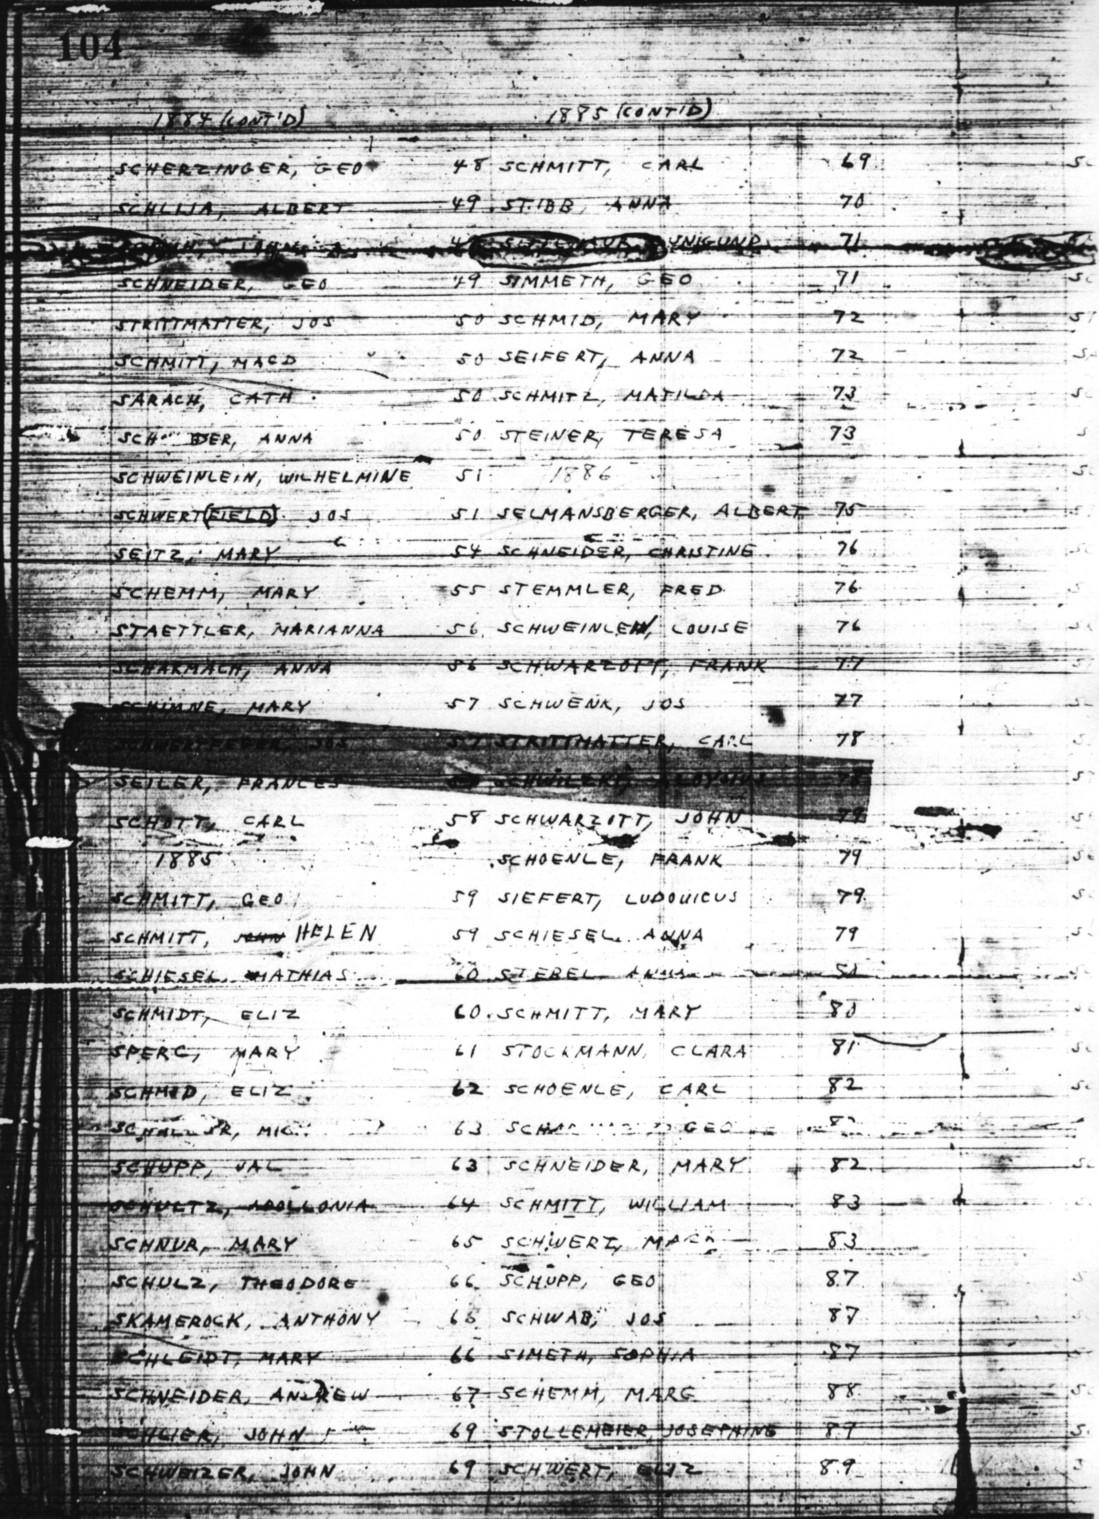 104
1884 (CONT'D) 1885 (CONT'D)
SCHERZINGER, GEO 48 SCHMITT, CARL 69
ALBERT 49 STIBB, ANNA 70
71
SCHNEIDER, GEO 49 SIMMETH, GEO 71
STRITTMATTER, JOS 50 SCHMID, MARY 72
SCHMITT, MAGD 50 SEIFERT, ANNA 72
SARACH, CATH 50 SCHMITZ, MATILDA 73
ANNA 50 STEINER, TERESA 73
SCHWEINLEIN, WILHELMINE 51 1886
SCHWERT(FIELD) JOS 51 SELMANSBERGER, ALBERT 75
SEITZ, MARY 54 SCHNEIDER, CHRISTINE 76
SCHEMM, MARY 55 STEMMLER, FRED 76
STAETTLER, MARIANNA 56 LOUISE 76
SCHARMACH, ANNA 56 SCHWARZOTT, FRANK 77
MARY 57 SCHWENK, JOS 77
JOS STRITTMATTER, CARL 78
SEILER, FRANCES ALOYSIUS 78
SCHOTT, CARL 58 SCHWARZOTT, JOHN 79
1885 SCHOENLE, FRANK 79
SCHMITT, GEO 59 SIEFERT, LUDOVICUS 79
SCHMITT, HELEN 59 SCHIESEL, ANNA 79
SCHIESEL, MATHIAS 60 STEBEL, ANNA
SCHMIDT, ELIZ 60 SCHMITT, MARY 80
SPERG, MARY 61 STOCKMANN, CLARA 81
SCHMID, ELIZ 62 SCHOENLE, CARL 82
SCHALL SR, 63 GEO
SCHUPP, VAL 63 SCHNEIDER, MARY 82
SCHULTZ, APOLLONIA 64 SCHMITT, WILLIAM 83
SCHNUR, MARY 65 SCHWERT, 83
SCHULZ, THEODORE 66 SCHUPP, GEO 87
SKAMEROCK, ANTHONY 66 SCHWAB, JOS 87
SCHLEIDT, MARY 66 SIMETH, SOPHIA 87
SCHNEIDER, ANDREW 67 SCHEMM, MARG 88
JOHN 69 STOLLEMEIER, JOSEPHINE 89
SCHWEIZER, JOHN 69 SCHWERT, ELIZ 89